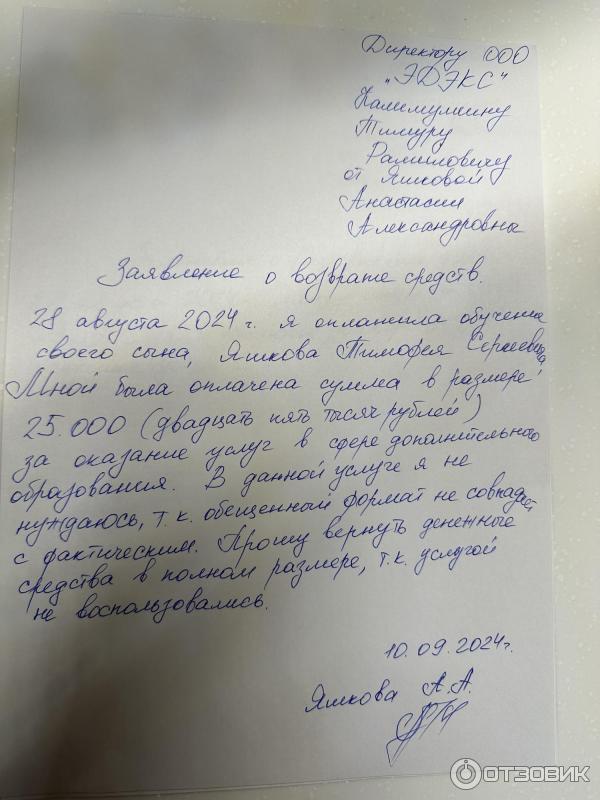 Директору ООО
"ЭДЭКС"
Калимуллину
Тимуру
Рамиловичу
от Яшковой
Анастасии
Александровны
Заявление о возврате средств.
28 августа 2024 г. я оплатила обучение
своего сына, Яшкова Тимофея Сергеевича.
Мной была оплачена сумма в размере
25.000 (двадцать пять тысяч рублей)
за оказание услуг в сфере дополнительного
образования. В данной услуге я не
нуждаюсь, т.к. обещенный формат не совпадает
с фактическим. Прошу вернуть денежные
средства в полном размере, т.к. услугой
не воспользовались.
10.09.2024г.
Яшкова А.А.
ОТЗОВИК